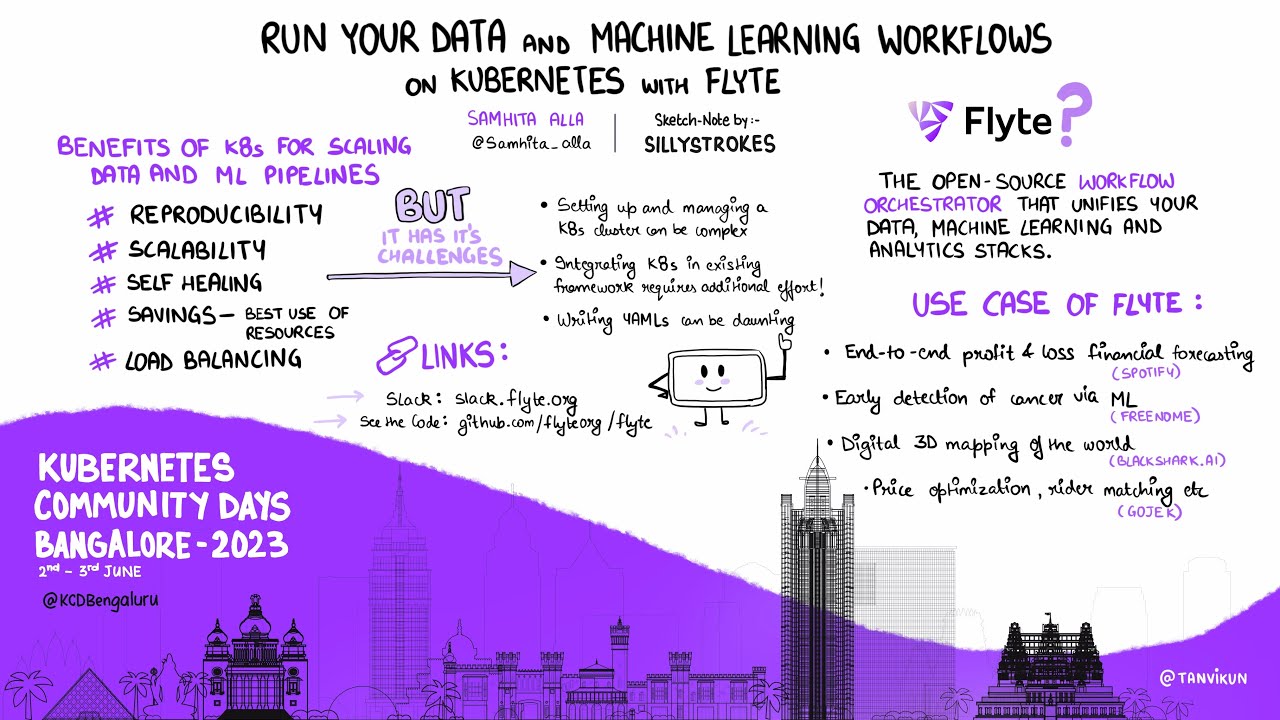 RUN YOUR DATA AND MACHINE LEARNING WORKFLOWS
ON KUBERNETES WITH FLYTE
SAMHITA ALLA
@Samhita_alla
Sketch-Note by:-
SILLYSTROKES
BENEFITS OF K8s FOR SCALING
DATA AND ML PIPELINES
# REPRODUCIBILITY
# SCALABILITY
# SELF HEALING
# SAVINGS - BEST USE OF
RESOURCES
# LOAD BALANCING
BUT
IT HAS IT'S
CHALLENGES
• Setting up and managing a
K8s cluster can be complex
• Integrating K8s in existing
framework requires additional effort!
• Writing YAMLs can be daunting
LINKS:
→ Slack: slack.flyte.org
→ See the Code: github.com/flyteorg/flyte
Flyte?
THE OPEN-SOURCE WORKFLOW
ORCHESTRATOR THAT UNIFIES YOUR
DATA, MACHINE LEARNING AND
ANALYTICS STACKS.
USE CASE OF FLYTE:
• End-to-end profit & loss financial forecasting
(SPOTIFY)
• Early detection of cancer via ML
(FREENOME)
• Digital 3D mapping of the world
(BLACKSHARK.AI)
• Price optimization, rider matching etc
(GOJEK)
KUBERNETES
COMMUNITY DAYS
BANGALORE - 2023
2nd - 3rd JUNE
@KCDBengaluru
@TANVIKUN